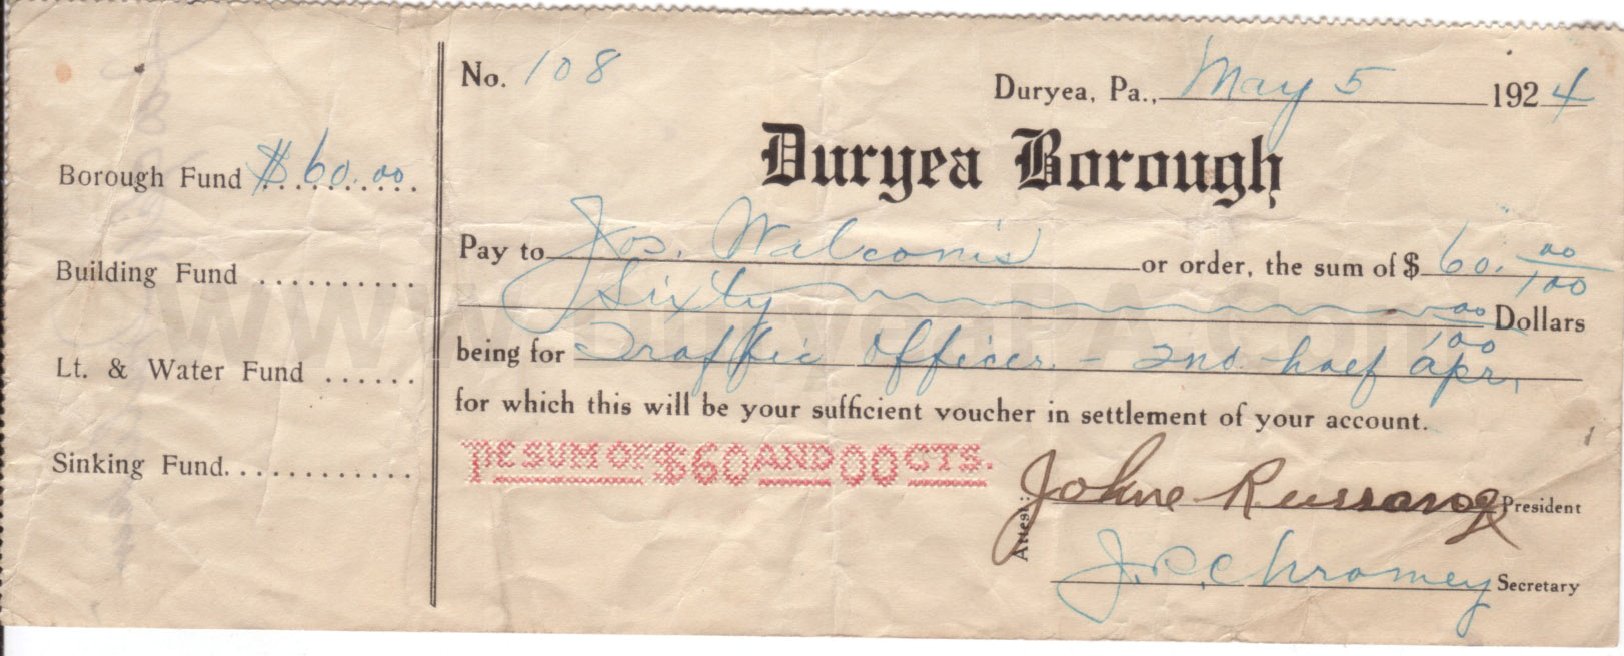 No. 108
Duryea, Pa., May 5 1924
Duryea Borough
Borough Fund $60.00
Pay to Jos. Walconis or order, the sum of $ 60. 00/100
Building Fund
Sixty 00/100 Dollars
being for Traffic Officer - 2nd half Apr.
Lt. & Water Fund
for which this will be your sufficient voucher in settlement of your account.
Sinking Fund
THE SUM OF $60 AND 00 CTS.
Attest: President
J. P. Chromey Secretary
www.DuryeaPA.com